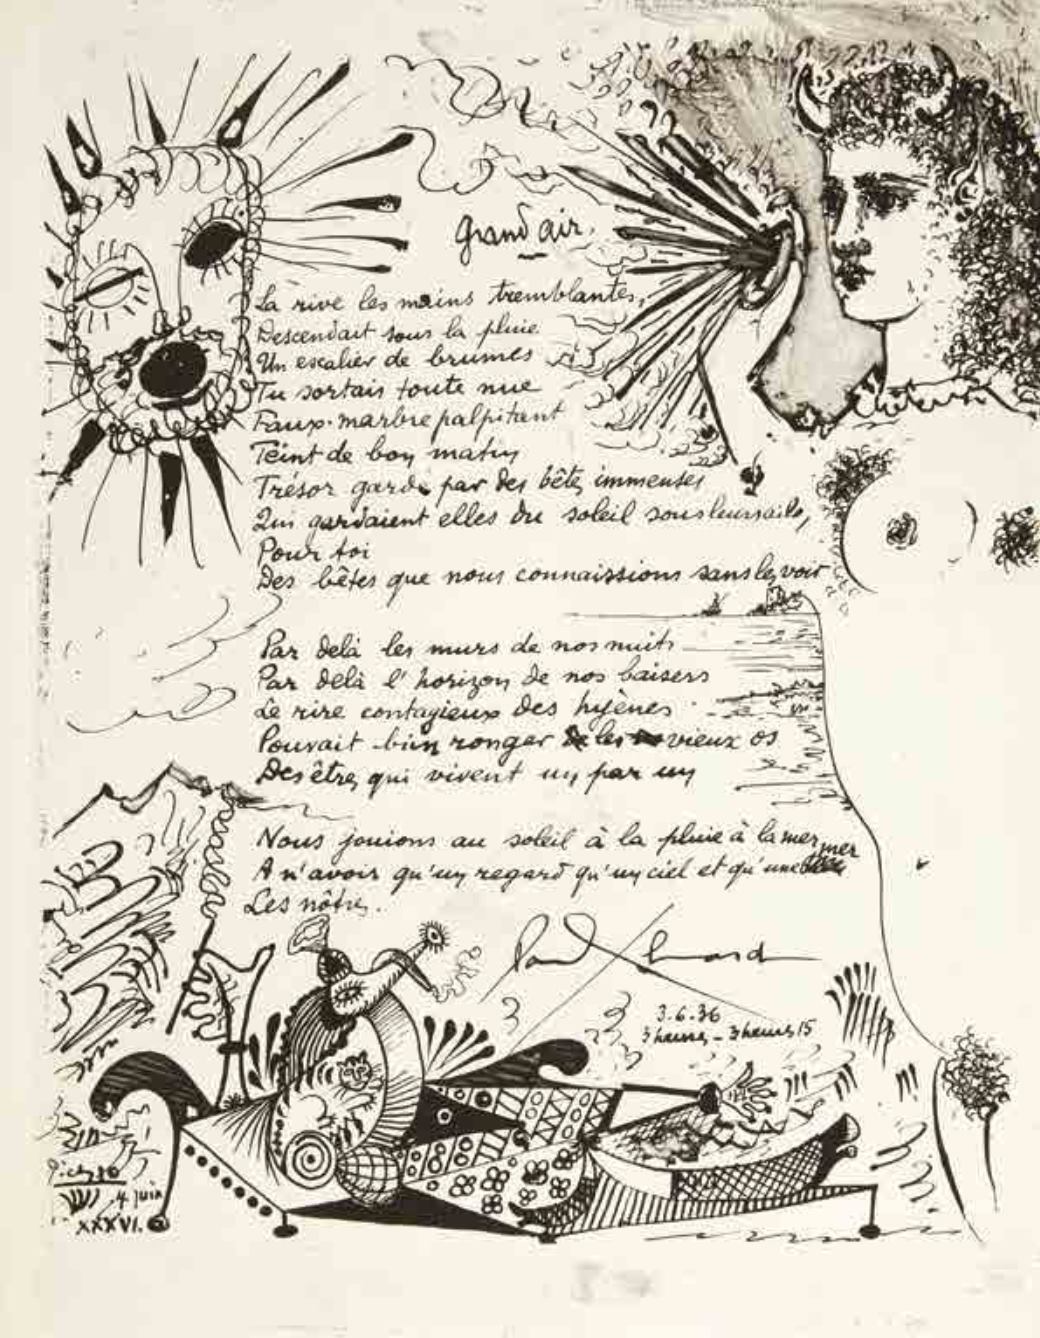 Grand air.
La rive les mains tremblantes,
Descendait sous la pluie
Un escalier de brumes
Tu sortais toute nue
Faux marbre palpitant
Teint de bon matin
Trésor gardé par des bêtes immenses
Qui gardaient elles du soleil sous leurs ailes,
Pour toi
Des bêtes que nous connaissions sans les voir
Par delà les murs de nos nuits
Par delà l'horizon de nos baisers
Le rire contagieux des hyènes
Pouvait bien ronger les vieux os
Des êtres qui vivent un par un
Nous jouions au soleil à la pluie à la mer
A n'avoir qu'un regard qu'un ciel et qu'une mer
Les nôtres.
Paul Eluard
3.6.36
3 heures – 3 heures 15
Picasso
4 juin
XXXVI.